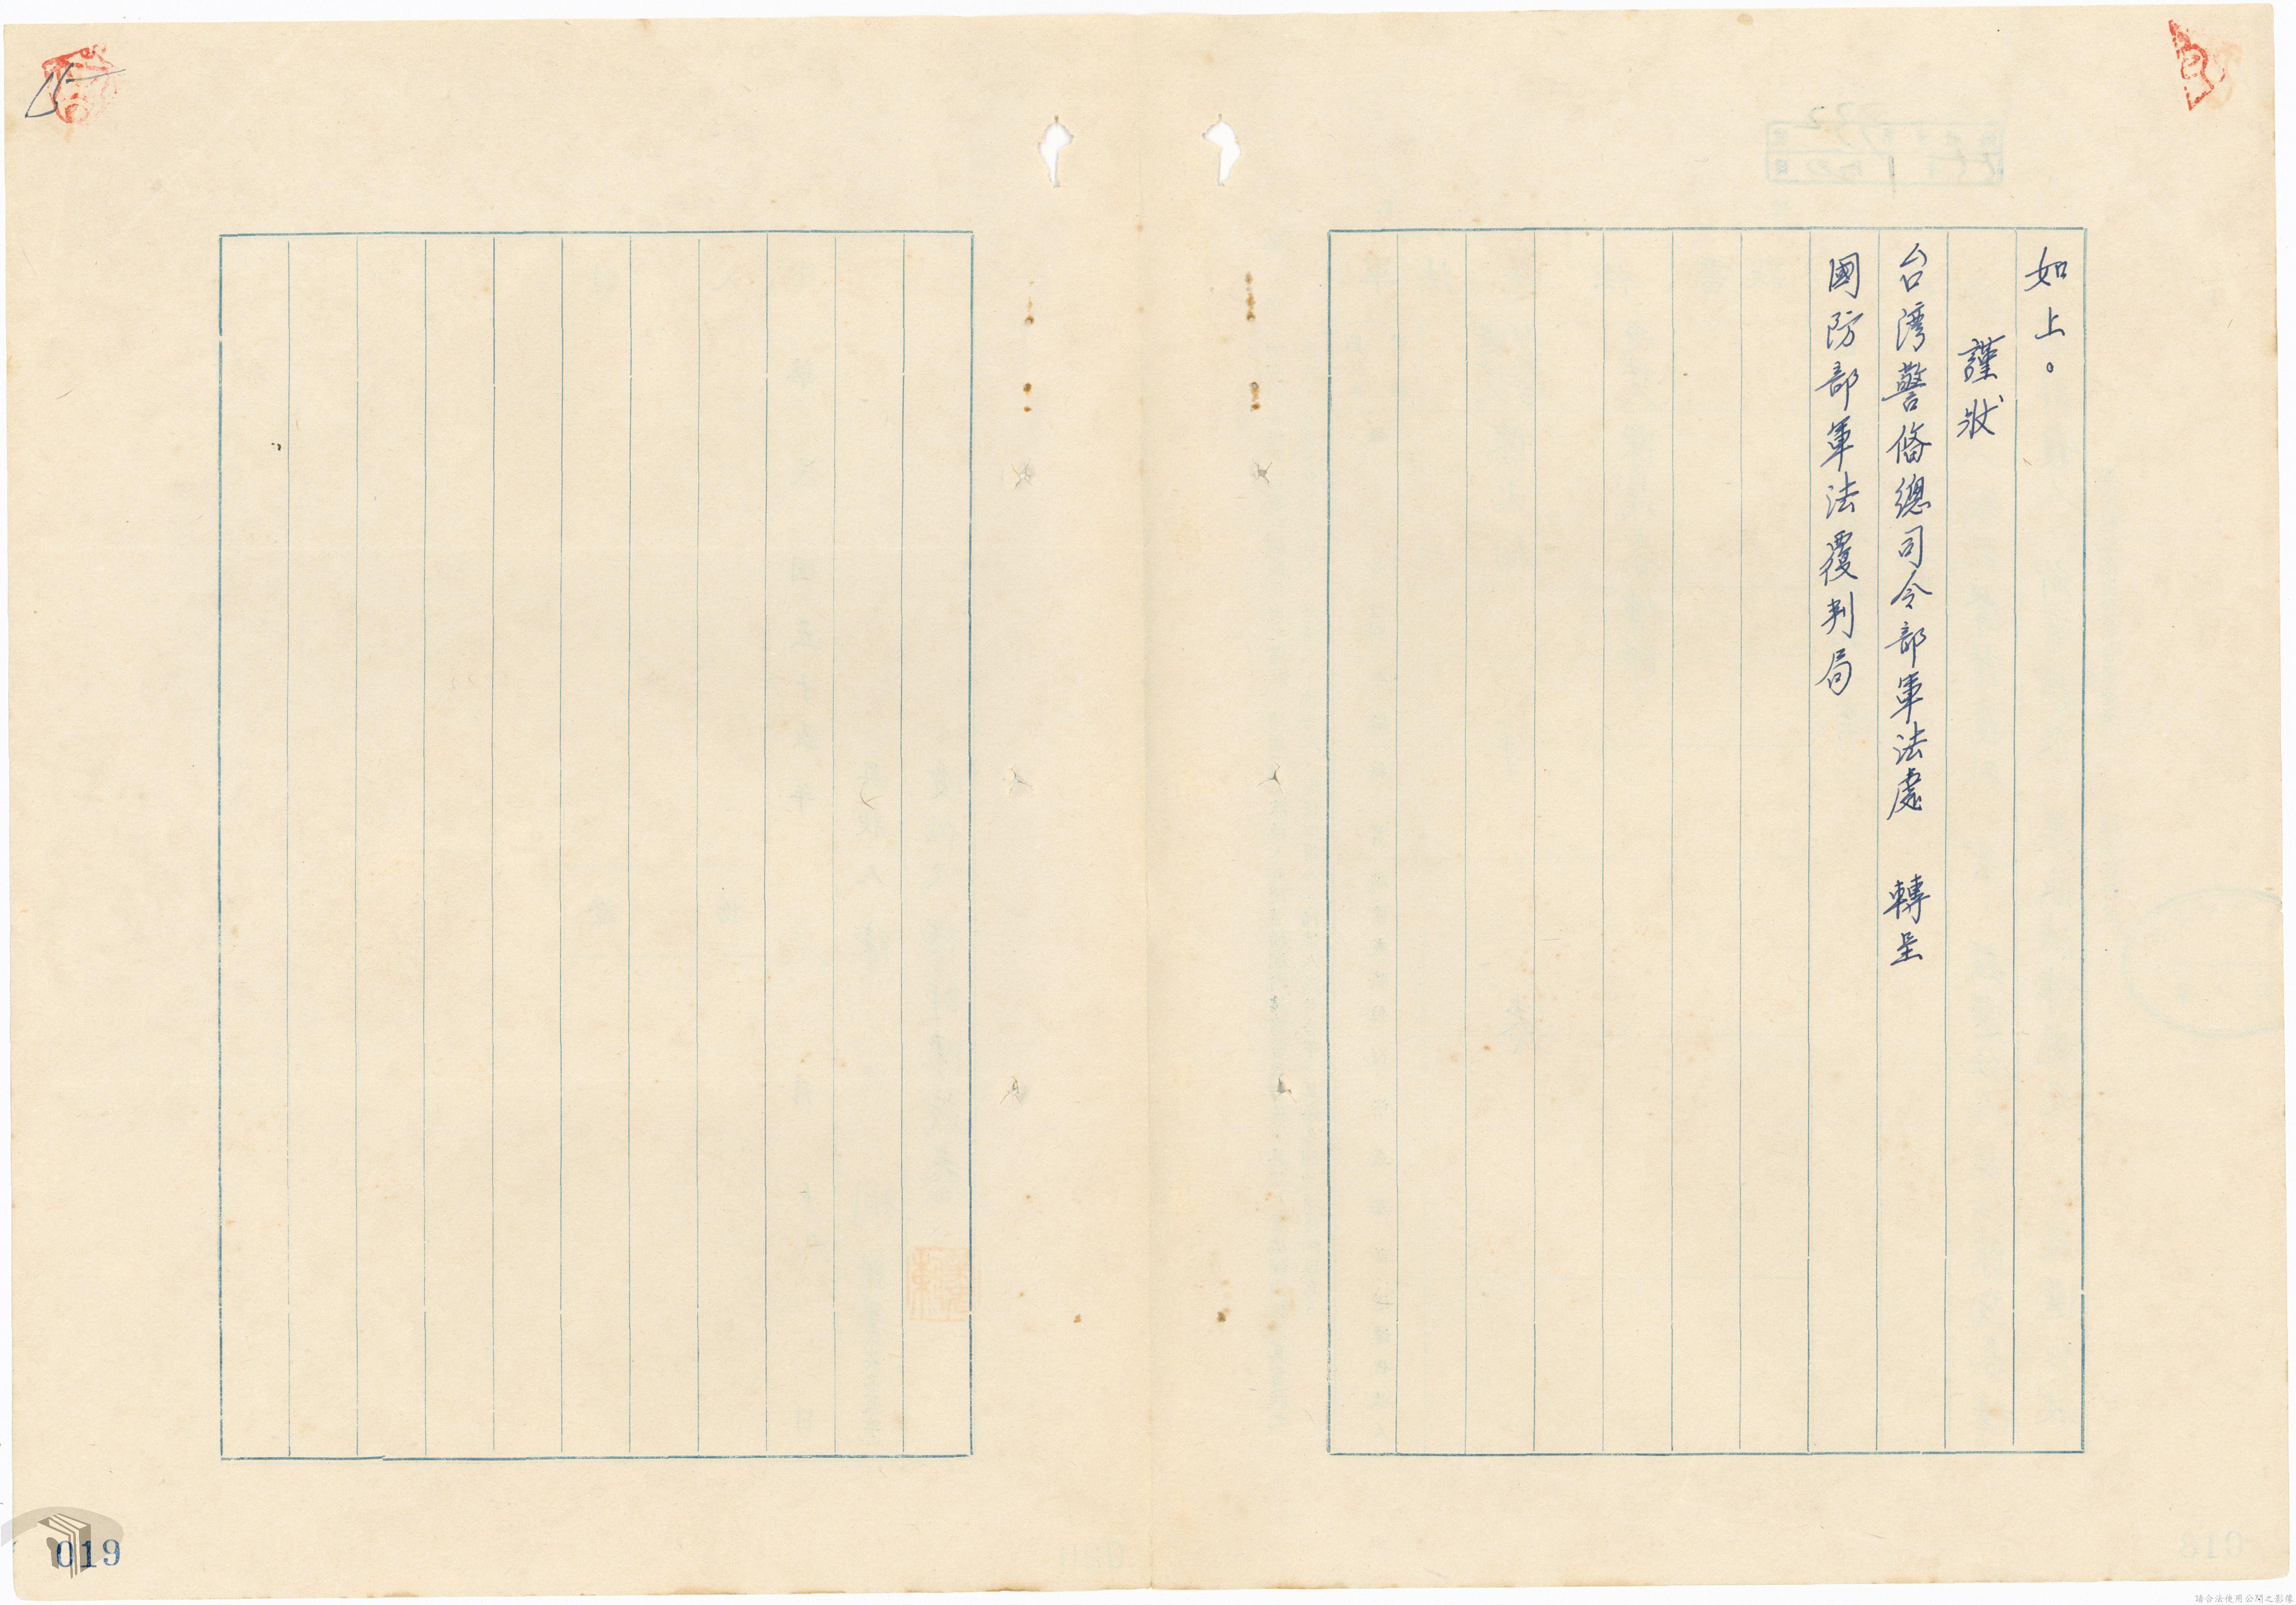 如上。
謹狀
台湾警備總司令部軍法處　轉呈
國防部軍法覆判局
15
019
請合法使用公開之影像